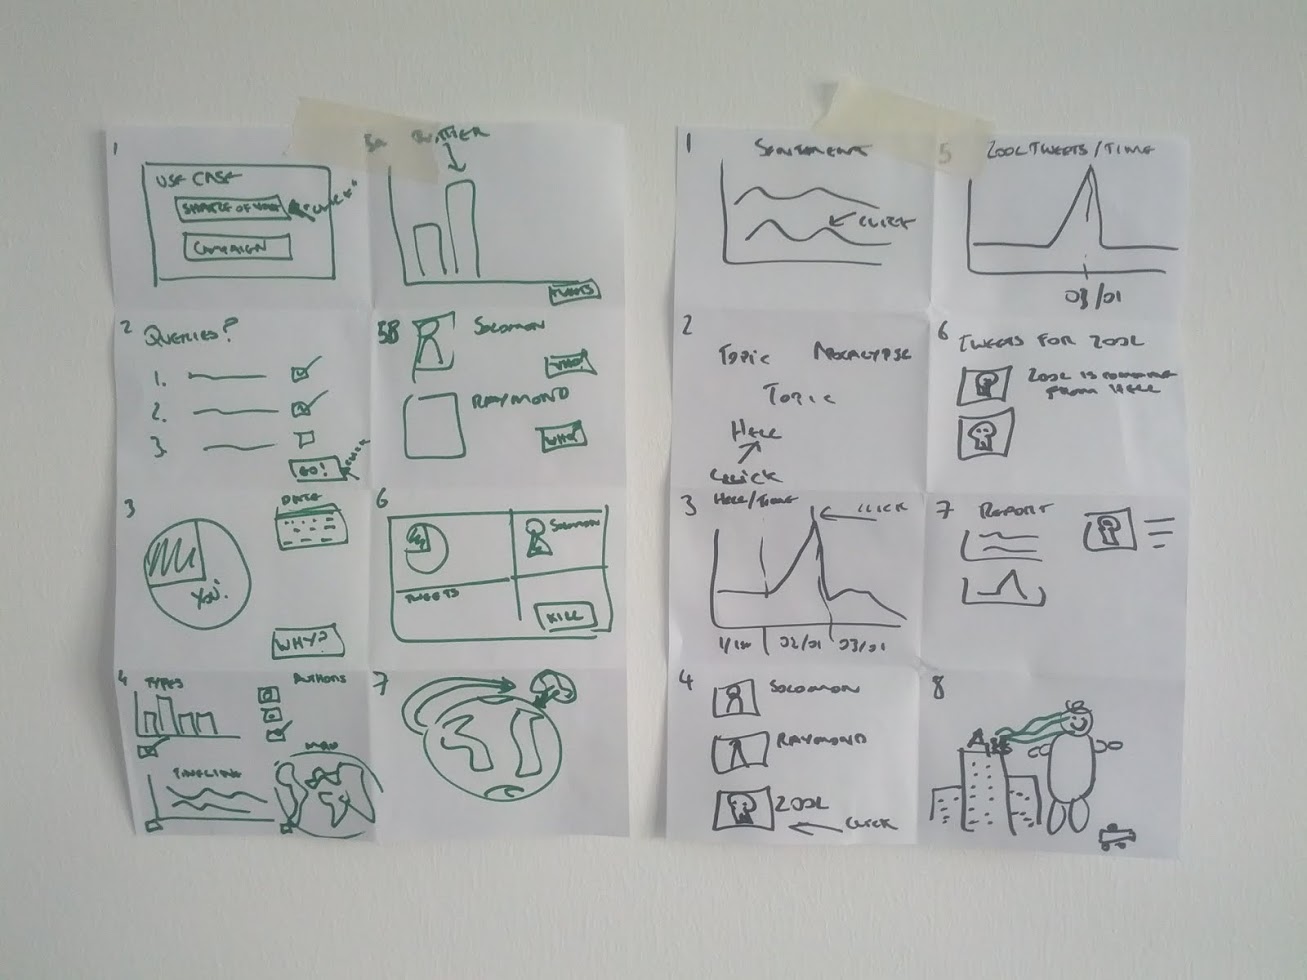 1
USE CASE
SHARE OF VOICE
CAMPAIGN
2
QUERIES?
1.
2.
3.
GO!
3
DATA
YOU!
WHY?
4
TYPES
AUTHORS
TIMELINE
MAP
5A
TWITTER
TWEETS
5B
SOLOMON
WHO?
RAYMOND
WHO?
6
SOLOMON
TWEETS
KILL
7
1
SENTIMENT
CLICK
2
TOPIC
APOCALYPSE
TOPIC
HELL
CLICK
3
HELL/TIME
CLICK
02/01
03/01
4
SOLOMON
RAYMOND
ZOOL
CLICK
5
ZOOL TWEETS/TIME
03/01
6
TWEETS FOR ZOOL
ZOOL IS
FROM HELL
7
REPORT
8